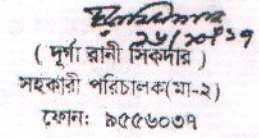 ২৮/১০/১৭
( দুর্গা রানী সিকদার )
সহকারী পরিচালক(মা-২)
ফোন: ৯৫৫৬০৩৭